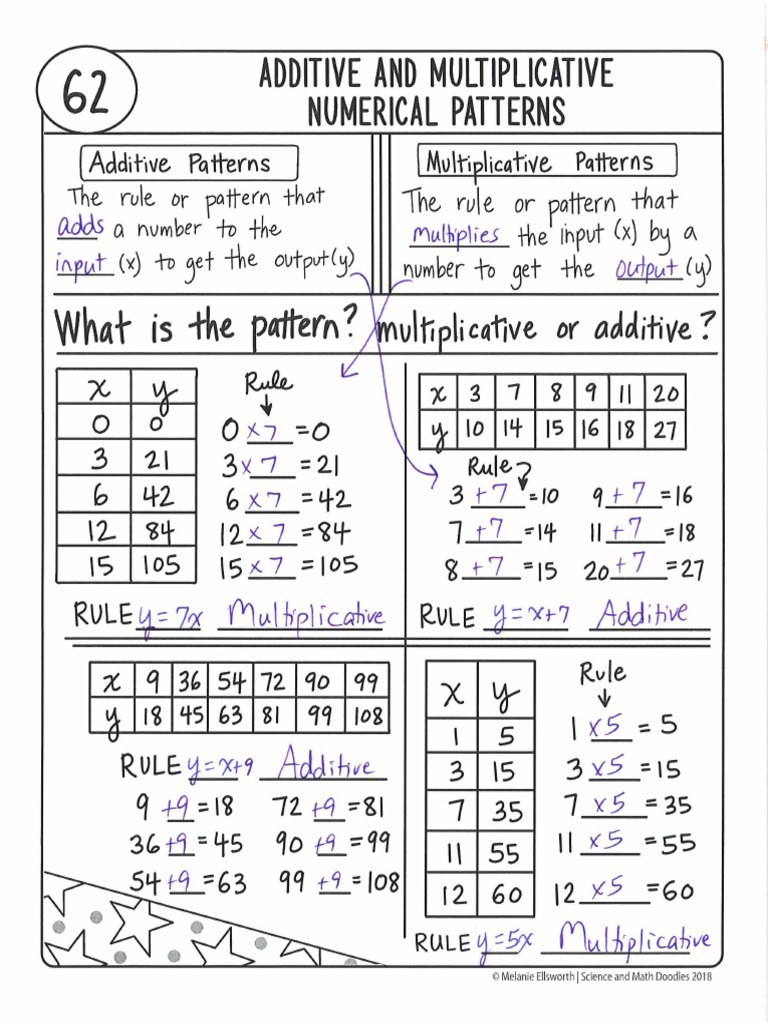 62
ADDITIVE AND MULTIPLICATIVE
NUMERICAL PATTERNS
Additive Patterns
The rule or pattern that
adds a number to the
input (x) to get the output(y)
Multiplicative Patterns
The rule or pattern that
multiplies the input (x) by a
number to get the output (y)
What is the pattern? multiplicative or additive?
x y
0 0
3 21
6 42
12 84
15 105
Rule
0 x 7 = 0
3 x 7 = 21
6 x 7 = 42
12 x 7 = 84
15 x 7 = 105
RULE y = 7x Multiplicative
x 3 7 8 9 11 20
y 10 14 15 16 18 27
Rule?
3 + 7 = 10 9 + 7 = 16
7 + 7 = 14 11 + 7 = 18
8 + 7 = 15 20 + 7 = 27
RULE y = x+7 Additive
x 9 36 54 72 90 99
y 18 45 63 81 99 108
RULE y = x+9 Additive
9 +9 = 18 72 +9 = 81
36 +9 = 45 90 +9 = 99
54 +9 = 63 99 +9 = 108
x y
1 5
3 15
7 35
11 55
12 60
Rule
1 x 5 = 5
3 x 5 = 15
7 x 5 = 35
11 x 5 = 55
12 x 5 = 60
RULE y = 5x Multiplicative
© Melanie Ellsworth | Science and Math Doodles 2018